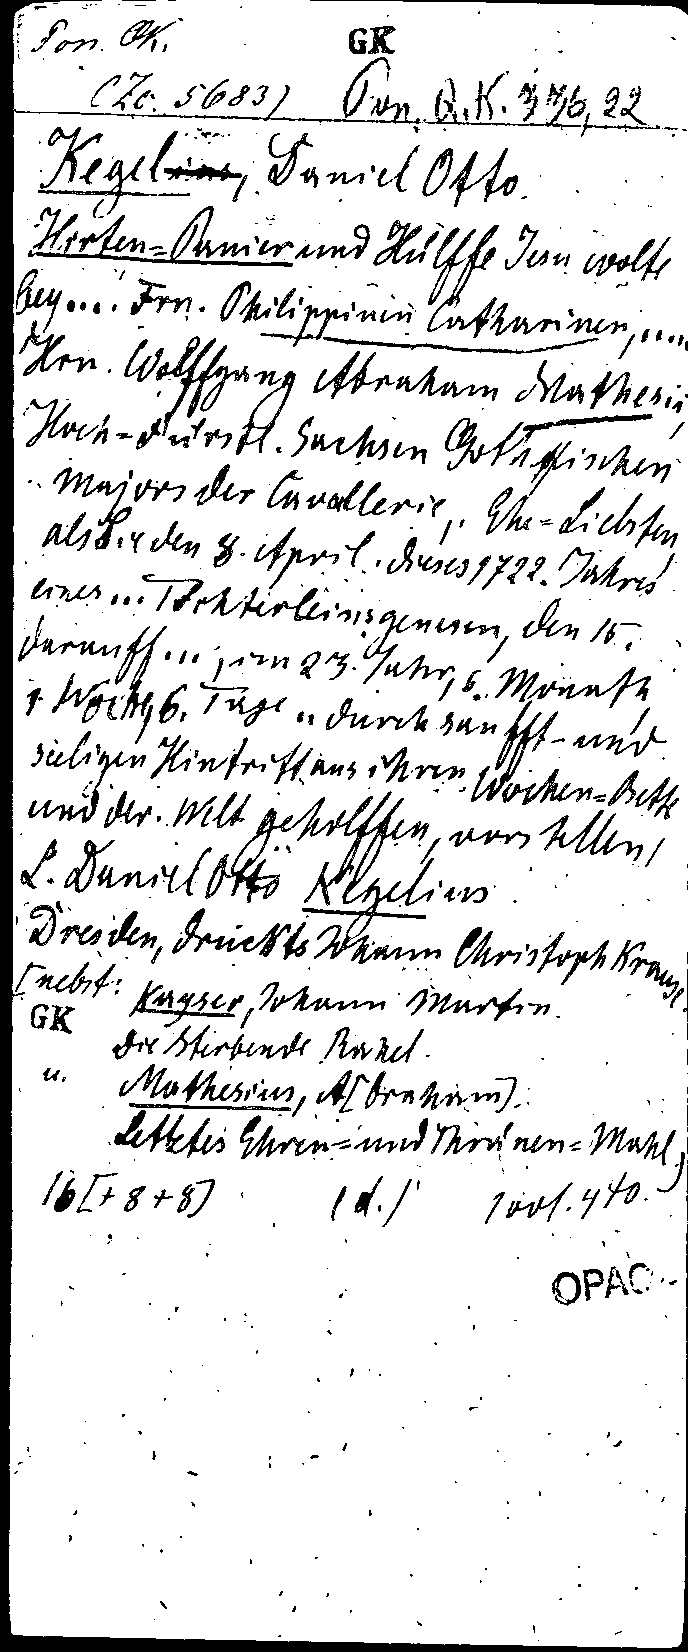 Pon. QK. GK
(Zc. 5683) Pon. Q.K. 376, 22
Kegelius, Daniel Otto.
Hirten=Panier und Hülffe Jesu wolte
bey... Frn. Philippinen Catharinen,....
Hrn. Wolffgang Abraham Mathesii,
Hoch=Fürstl. Sachsen Gothaischen
Majors der Cavallerie,. Ehe=Liebsten,
als Sie den 8. April. dieses 1722. Jahres
eines... Töchterleins genesen, den 15.
darauff..., im 23. Jahr, 6. Monath,
1 Woche, 6. Tage .. durch sanfft- und
seeligen Hintritt aus ihren Wochen=Bette
und der. Welt geholffen, vorstellen,
L. Daniel Otto Kegelius
Dresden, druckts Johann Christoph Krause.
[nebst:
GK Kayser, Johann Martin.
Die sterbende Rahel.
u. Mathesius, A[braham].
Letztes Ehren= und Thränen=Mahl.]
16 [+ 8 + 8) (d.)
OPAC